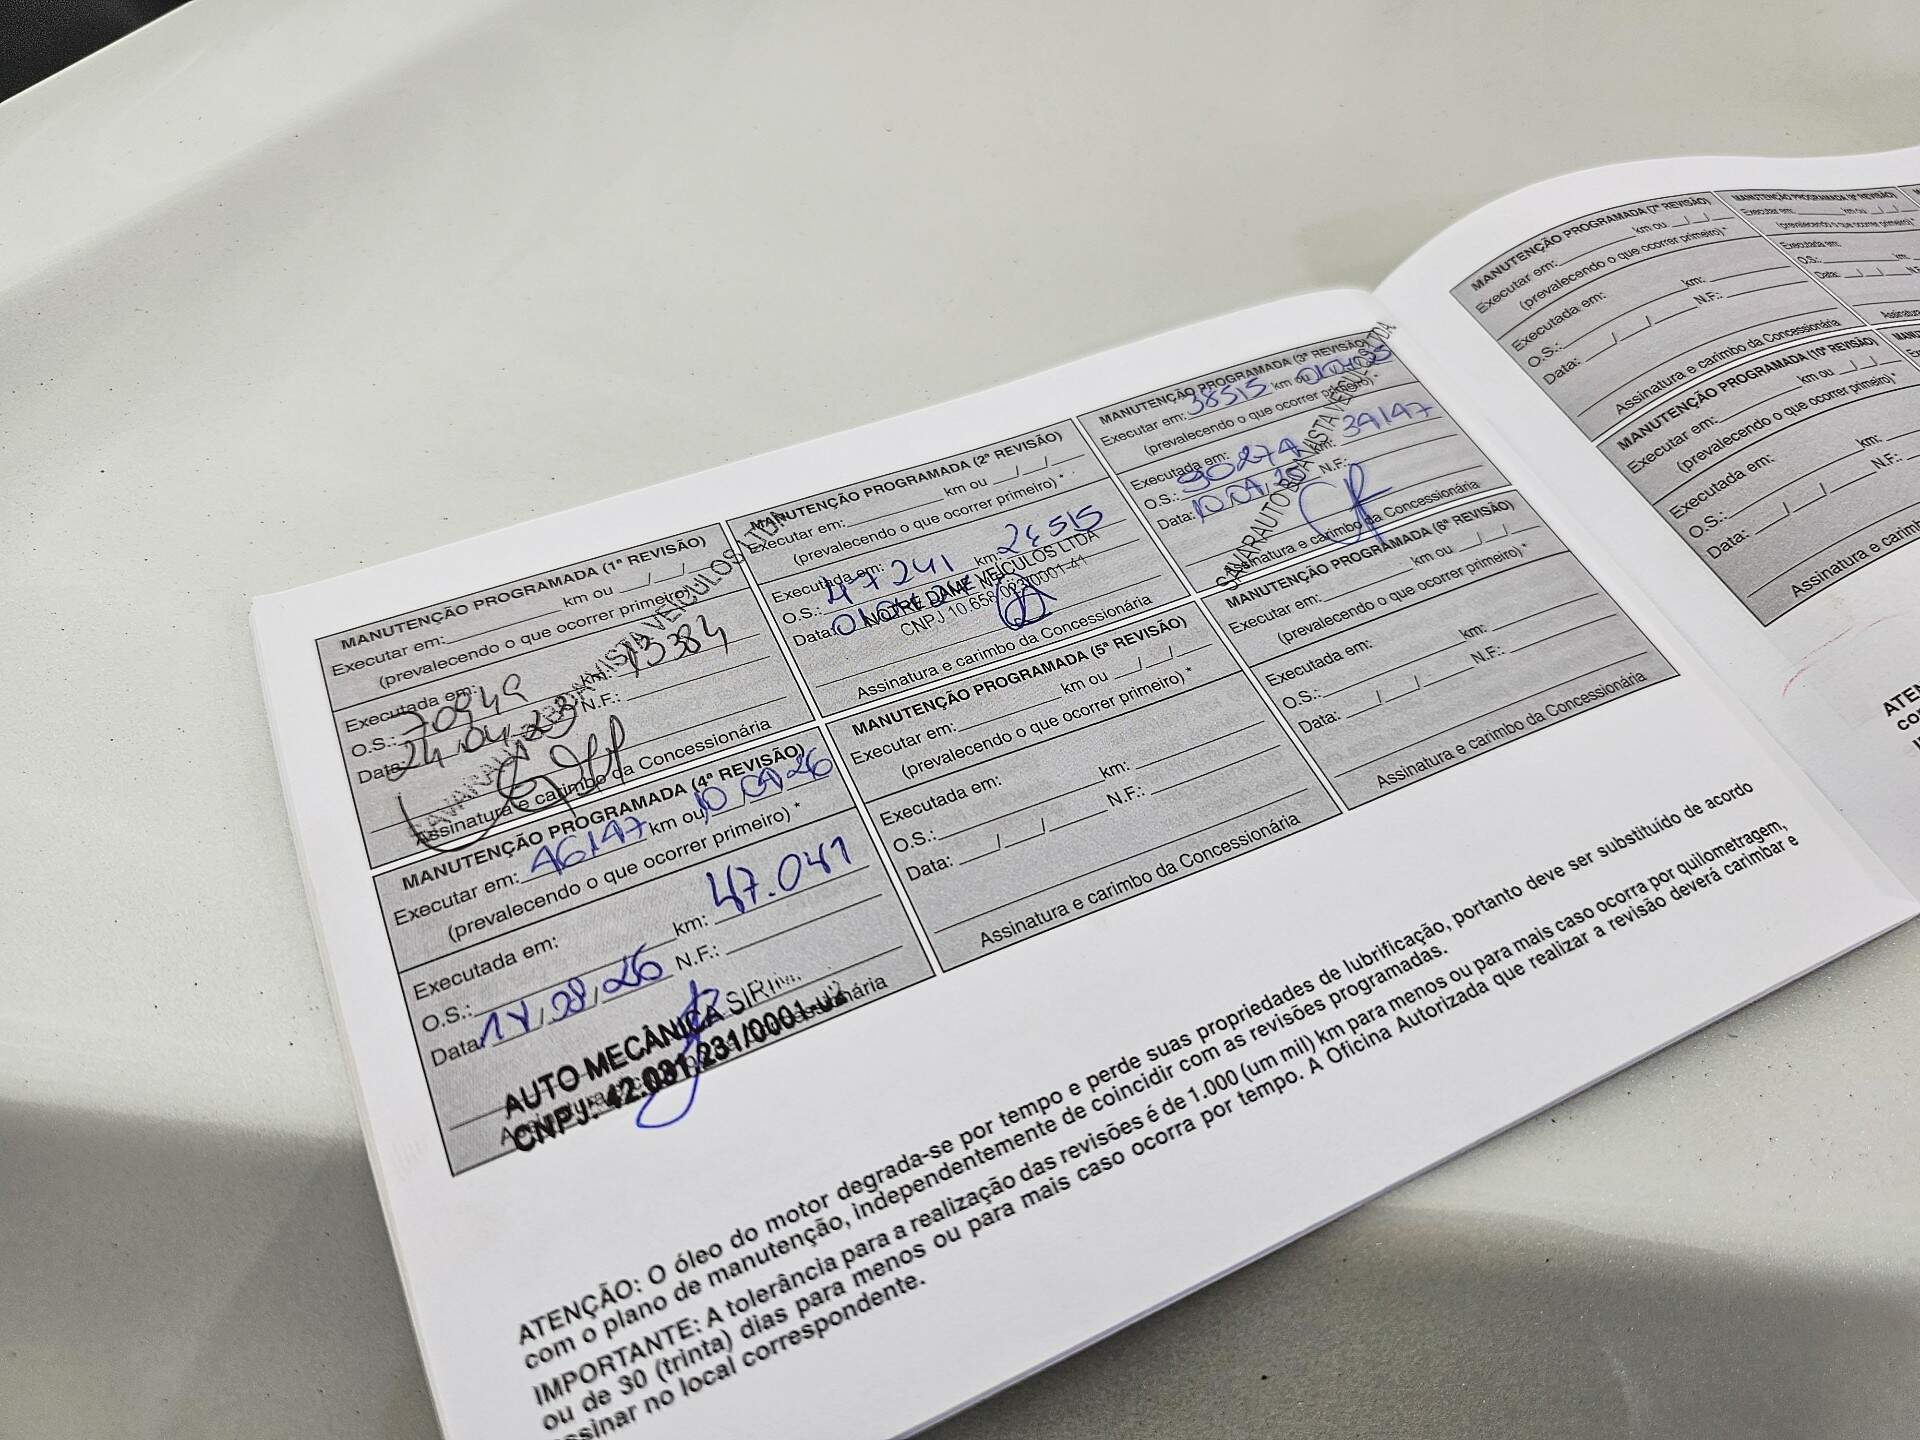 MANUTENÇÃO PROGRAMADA (1ª REVISÃO)
Executar em: km ou / /
(prevalecendo o que ocorrer primeiro) *
Executada em:
O.S.: km: 13384
Data: 24 04 23 N.F.:
Assinatura e carimbo da Concessionária
MANUTENÇÃO PROGRAMADA (2ª REVISÃO)
Executar em: km ou / /
(prevalecendo o que ocorrer primeiro) *
Executada em:
O.S.: 47241 km: 28515
Data:
NOTRE DAME VEÍCULOS LTDA
CNPJ 10.658
Assinatura e carimbo da Concessionária
MANUTENÇÃO PROGRAMADA (3ª REVISÃO)
Executar em: 38515 km ou
(prevalecendo o que ocorrer primeiro) *
Executada em:
O.S.: 90274 km:
Data: N.F.:
VEICULOS LTDA
Assinatura e carimbo da Concessionária
MANUTENÇÃO PROGRAMADA (4ª REVISÃO)
Executar em: 46147 km ou
(prevalecendo o que ocorrer primeiro) *
Executada em:
O.S.: km: 47.041
Data: N.F.:
AUTO MECÂNICA
CNPJ: 42.031.231/0001-
MANUTENÇÃO PROGRAMADA (5ª REVISÃO)
Executar em: km ou / /
(prevalecendo o que ocorrer primeiro) *
Executada em:
O.S.: km:
Data: / / N.F.:
Assinatura e carimbo da Concessionária
MANUTENÇÃO PROGRAMADA (6ª REVISÃO)
Executar em: km ou / /
(prevalecendo o que ocorrer primeiro) *
Executada em:
O.S.: km:
Data: / / N.F.:
Assinatura e carimbo da Concessionária
ATENÇÃO: O óleo do motor degrada-se por tempo e perde suas propriedades de lubrificação, portanto deve ser substituído de acordo
com o plano de manutenção, independentemente de coincidir com as revisões programadas.
IMPORTANTE: A tolerância para a realização das revisões é de 1.000 (um mil) km para menos ou para mais caso ocorra por quilometragem,
ou de 30 (trinta) dias para menos ou para mais caso ocorra por tempo. A Oficina Autorizada que realizar a revisão deverá carimbar e
assinar no local correspondente.
MANUTENÇÃO PROGRAMADA (7ª REVISÃO)
Executar em: km ou / /
(prevalecendo o que ocorrer primeiro) *
Executada em:
O.S.: km:
Data: / / N.F.:
Assinatura e carimbo da Concessionária
MANUTENÇÃO PROGRAMADA (8ª REVISÃO)
Executar em: km ou / /
(prevalecendo o que ocorrer primeiro) *
Executada em:
O.S.: km:
Data: / /
Assinatura e carimbo da Concessionária
MANUTENÇÃO PROGRAMADA (10ª REVISÃO)
Executar em: km ou / /
(prevalecendo o que ocorrer primeiro) *
Executada em:
O.S.: km:
Data: / / N.F.:
Assinatura e carimb